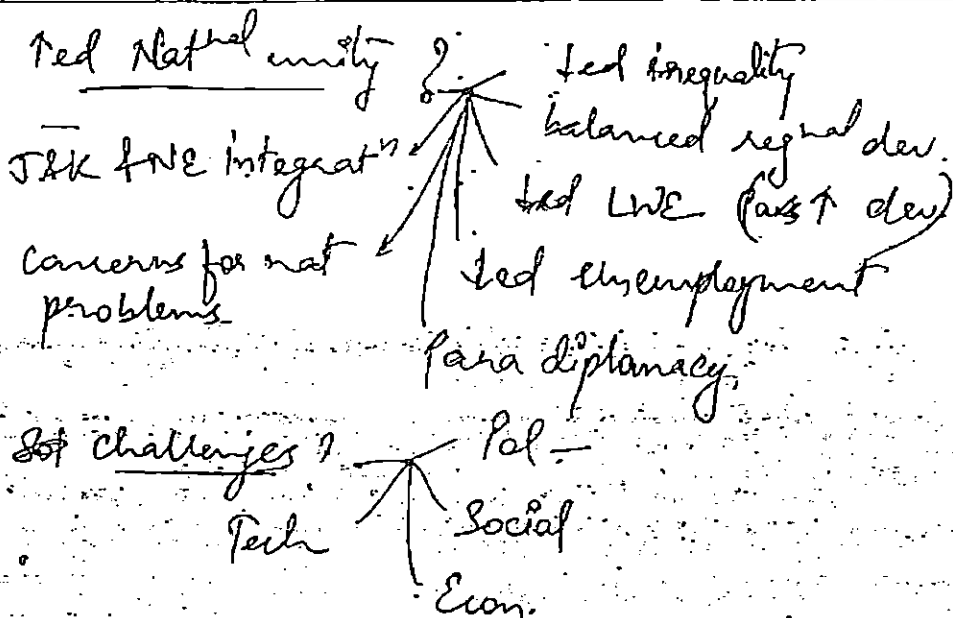 ↑ed Natnal unity ?
↓ed inequality
balanced regnal dev.
J&K & NE integratn
↓ed LWE (as ↑ dev)
concerns for nat
problems
↓ed unemployment
Para diplomacy
challenges ?
Pol -
Social
Tech
Econ.